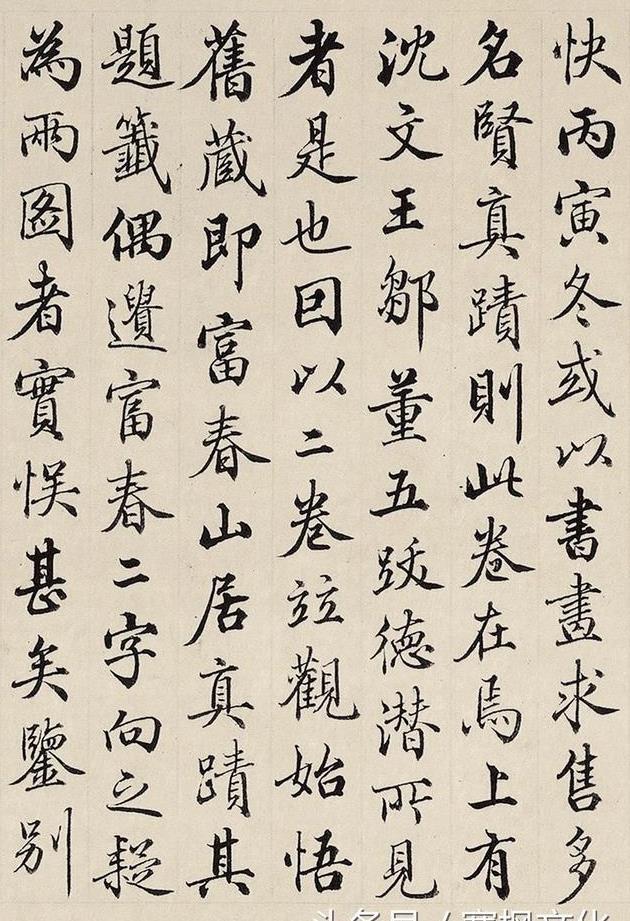 快丙寅冬或以書畫求售多
名賢真蹟則此卷在焉上有
沈文王鄒董五跋德潜所見
者是也因以二卷竝觀始悟
舊蔵即富春山居真蹟其
題籤偶遺富春二字向之疑
為兩圖者實悮甚矣鑒别